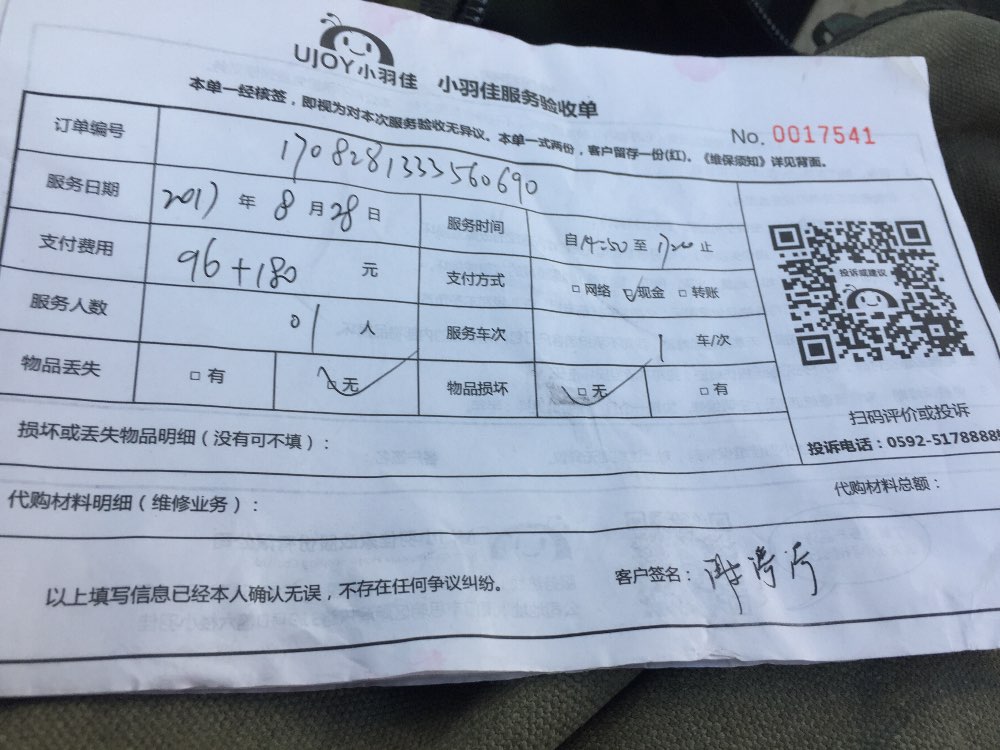 UJOY小羽佳 小羽佳服务验收单
本单一经核签，即视为对本次服务验收无异议。本单一式两份，客户留存一份(红)。《维保须知》详见背面。
No. 0017541
订单编号 1708281333560690
服务日期 2017 年 8 月 28 日 服务时间 自14:50 至 17:20 止
支付费用 96+180 元 支付方式 □网络 ☑现金 □转账
服务人数 01 人 服务车次 1 车/次
物品丢失 □有 ☑无 物品损坏 ☑无 □有
投诉或建议
扫码评价或投诉
投诉电话：0592-5178888
损坏或丢失物品明细（没有可不填）：
代购材料明细（维修业务）： 代购材料总额：
以上填写信息已经本人确认无误，不存在任何争议纠纷。 客户签名：